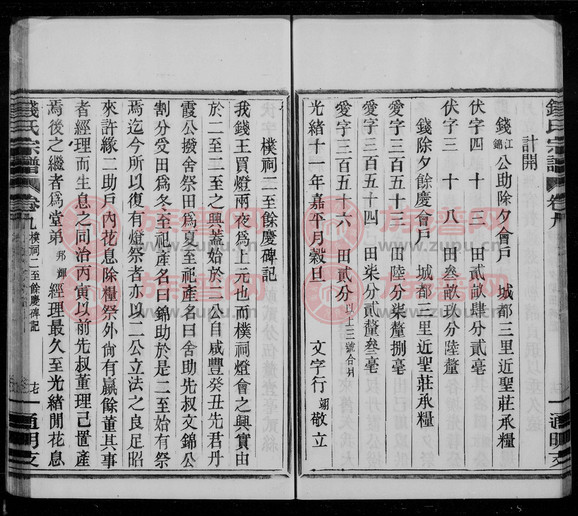 錢氏宗譜 卷九
計開
錢江錦公助除夕會戶 城都三里近聖莊承糧
伏字四十三 田貳畝肆分貳毫
伏字三十八 田叁畝玖分陸釐
錢除夕餘慶會戶 城都三里近聖莊承糧
愛字三百五十三 田陸分柒釐捌毫
愛字三百五十四 田柒分貳釐叁毫
愛字三百五十六 田貳分以上三號合刋
光緒十一年嘉平月穀旦 文字行 敬立
通明支
樸祠二至餘慶碑記
我錢王買燈兩夜為上元也而樸祠燈會之興實由
於二至二至之興蓋始於二公自咸豐癸丑先君丹
霞公撥舍祭田為夏至祀產名曰舍助先叔文錦公
割分受田為冬至祀產名曰錦助於是二至始有祭
焉迄今所以復有燈祭者亦以二公立法之良足昭
來許緣二助戶內花息除糧祭外尚有贏餘董其事
者經理而生息之同治丙寅以前先叔董理己置產
焉後之繼者為堂弟邦輝經理最久至光緒閒花息
錢氏宗譜 卷九 樸祠二至餘慶碑記
通明支
www.zupu.cn
族譜网